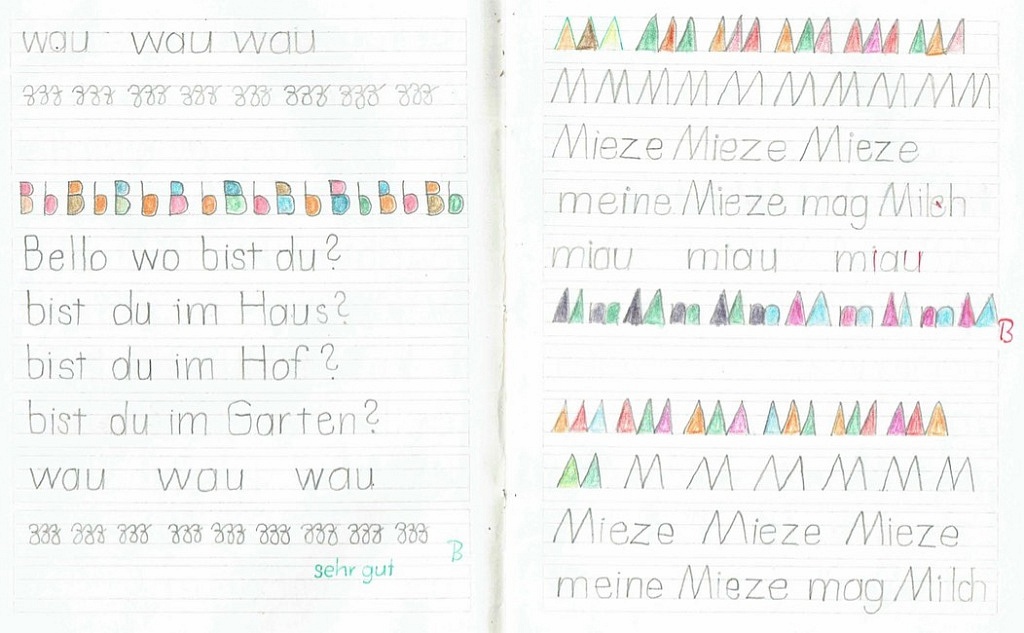 wau wau wau
B b B b B b B b B b B b B b B b B b
Bello wo bist du?
bist du im Haus?
bist du im Hof?
bist du im Garten?
wau wau wau
B
sehr gut
M M M M M M M M M M
Mieze Mieze Mieze
meine Mieze mag Milch
miau miau miau
M m M m M m M m M m M
B
M M M M M M M
Mieze Mieze Mieze
meine Mieze mag Milch